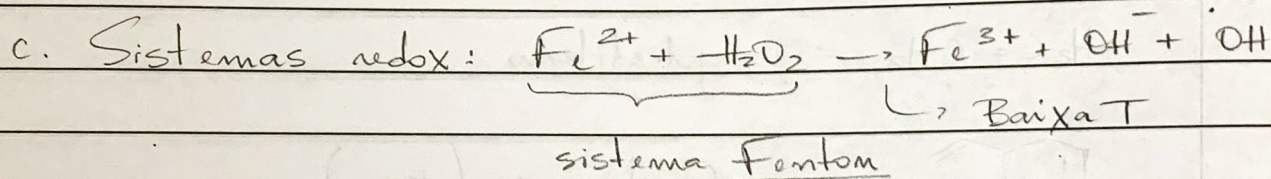 c. Sistemas redox: Fe²⁺ + H₂O₂ → Fe³⁺ + OH⁻ + ˙OH
↳ Baixa T
sistema Fenton